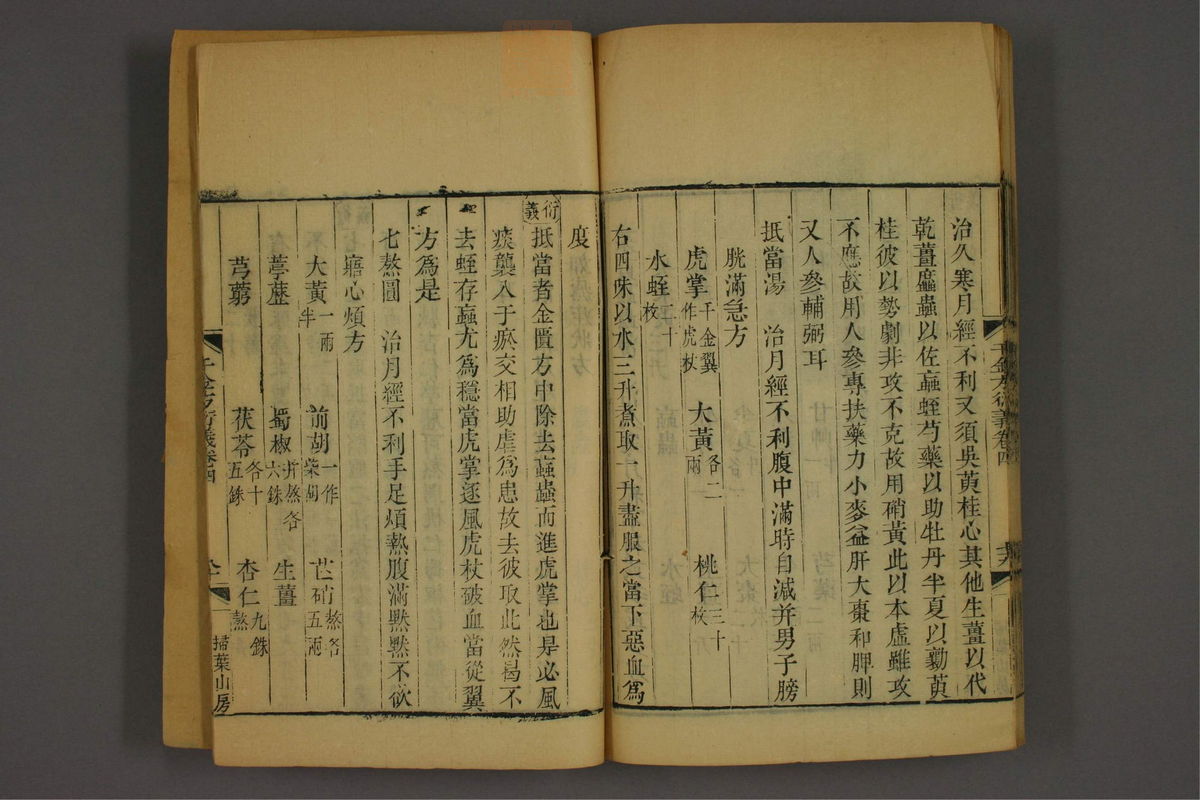 治久寒月經不利又須吳萸桂心其他生薑以代
乾薑䗪蟲以佐蝱蛭芍藥以助牡丹半夏以勷萸
桂彼以勢劇非攻不克故用硝黃此以本虛雖攻
不應故用人參專扶藥力小麥益肝大棗和脾則
又人參輔弼耳
抵當湯　治月經不利腹中滿時自減并男子膀
胱滿急方
虎掌千金翼作虎杖　大黃各二兩　桃仁三十枚
水蛭二十枚
右四味以水三升煮取一升盡服之當下惡血爲
度
衍義 抵當者金匱方中除去蝱蟲而進虎掌也是必風
痰襲入于瘀交相助虐爲患故去彼取此然曷不
去蛭存蝱尤爲穩當虎掌逐風虎杖破血當從翼
方爲是
七熬圓　治月經不利手足煩熱腹滿黙黙不欲
寤心煩方
大黃一兩半　前胡一作柴胡　芒硝熬各五兩
葶藶　蜀椒并熬各六銖　生薑
芎藭　茯苓各十五銖　杏仁九銖熬
千金方衍義卷四
掃葉山房
千金方衍義卷四